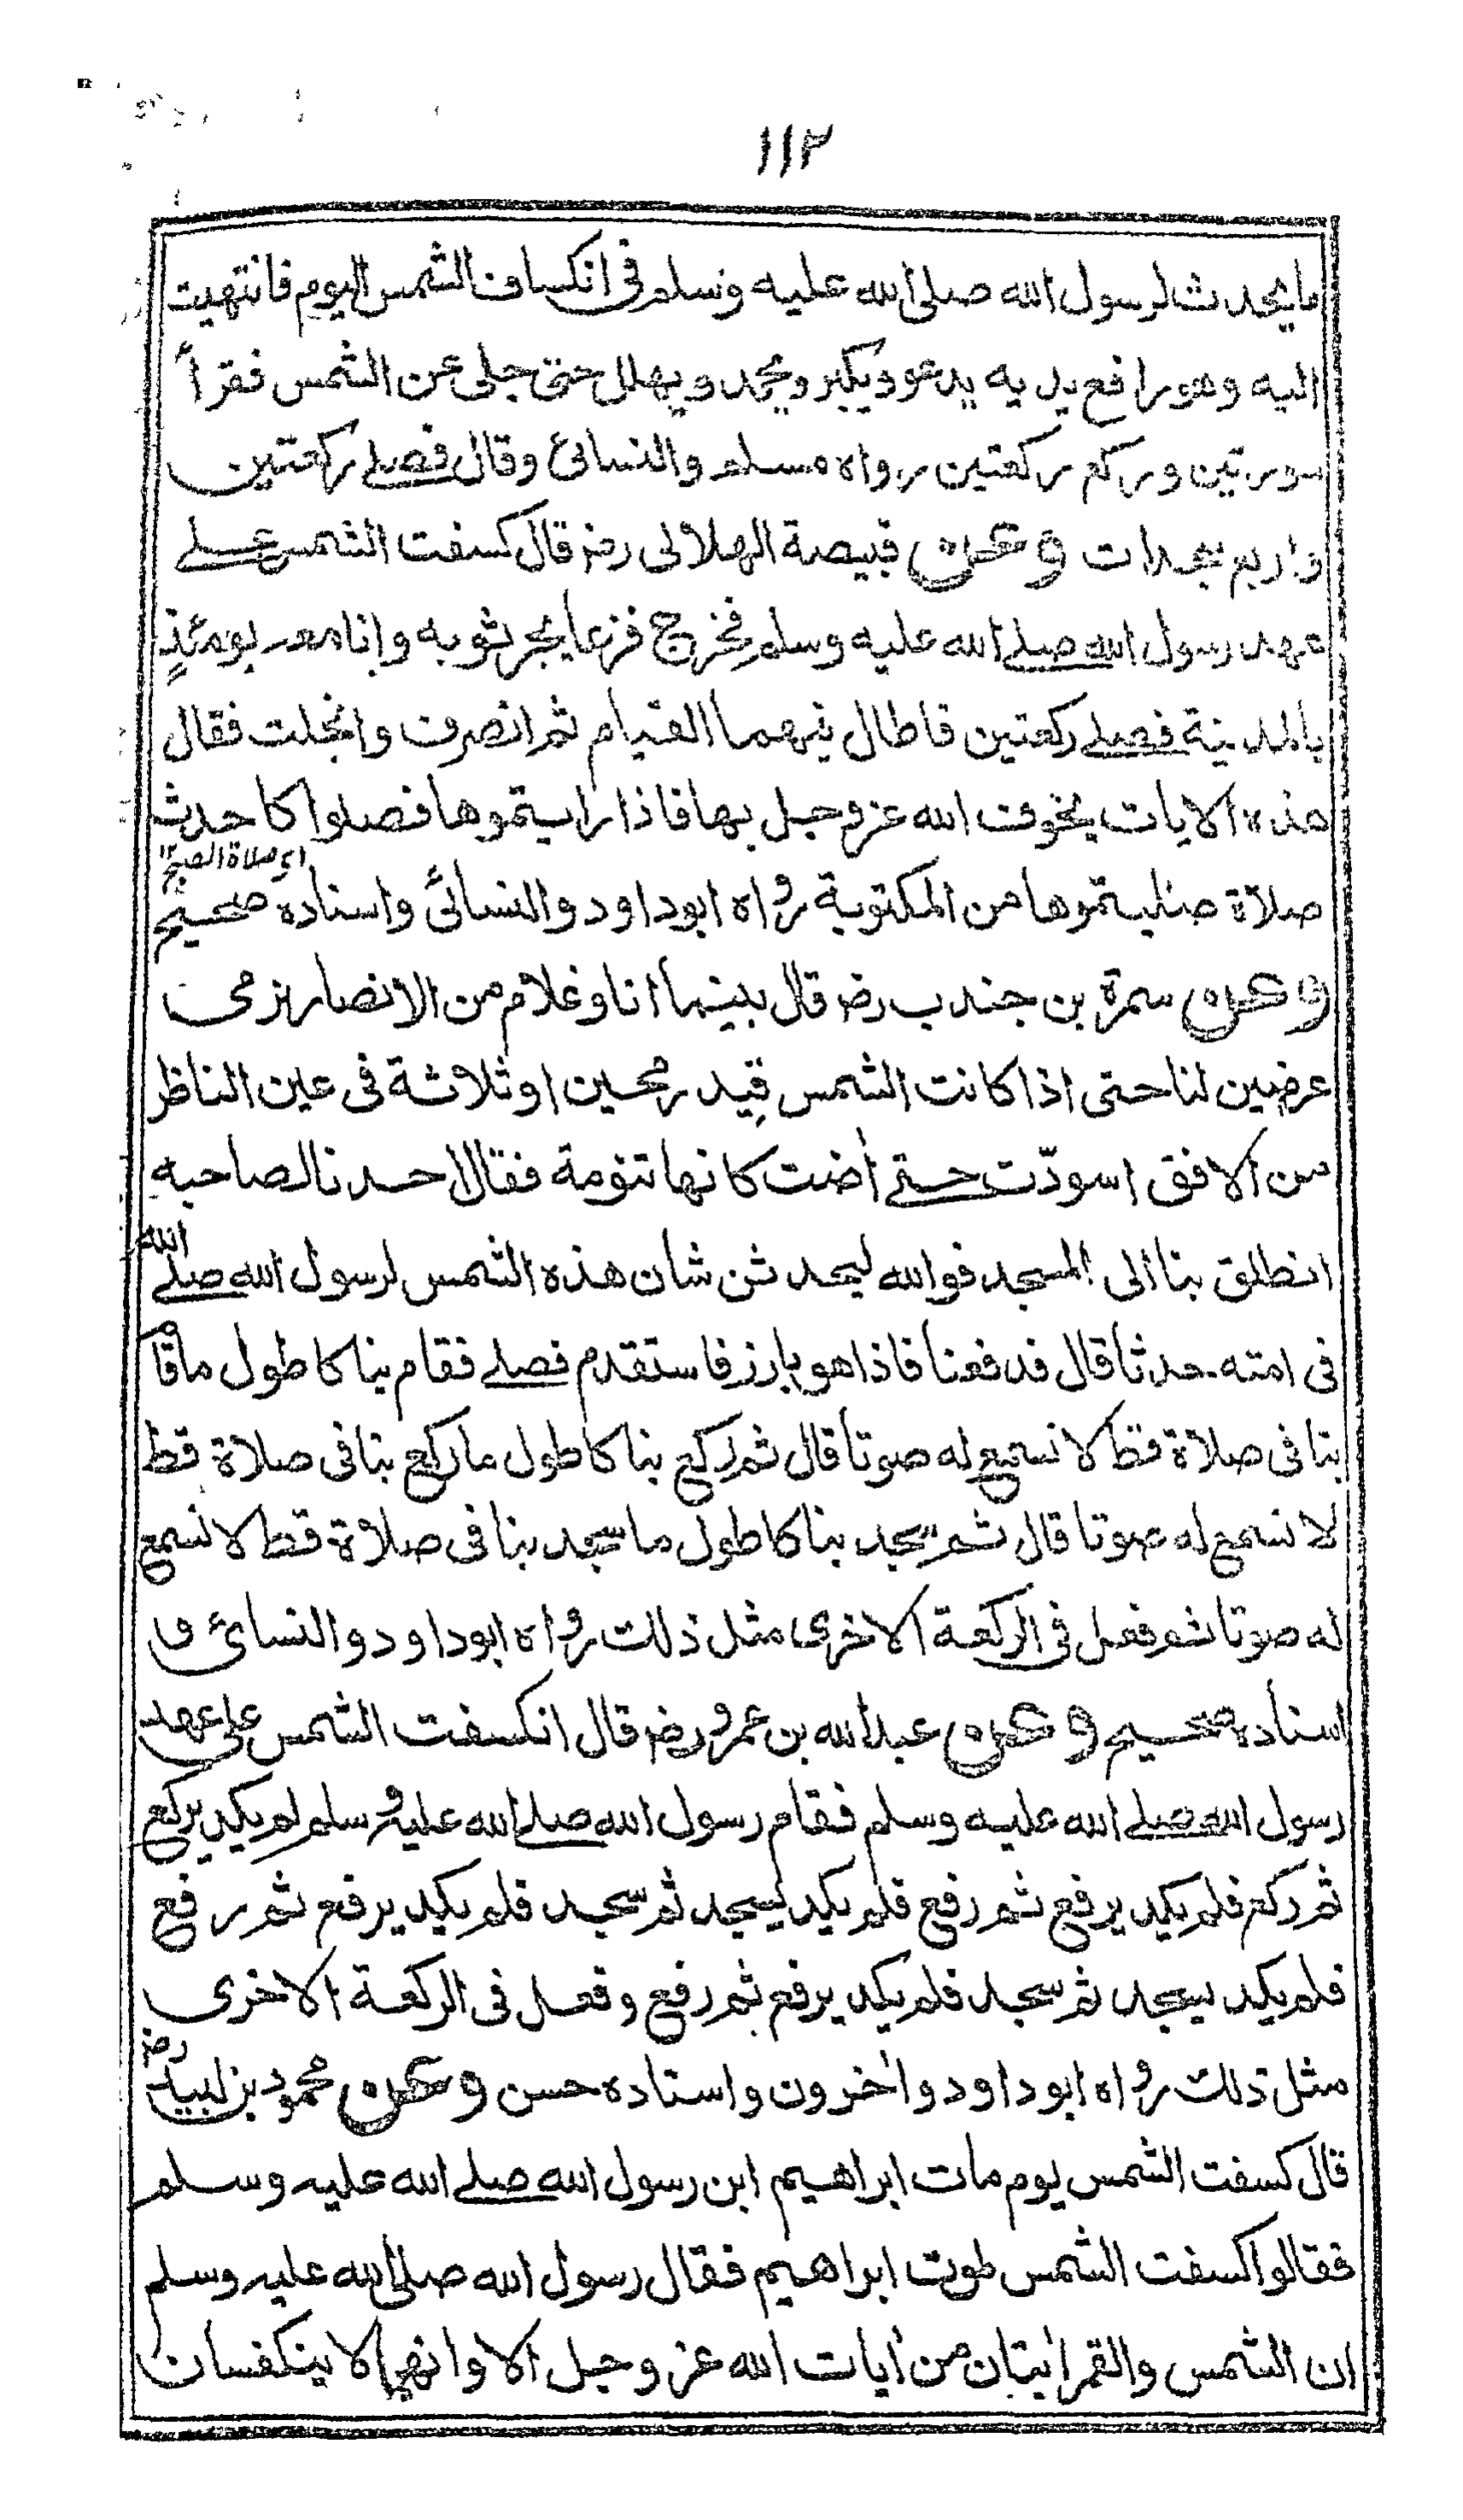 ١١٢
ما يحدث لرسول الله صلى الله عليه وسلم فى انكساف الشمس اليوم فانتهيت
اليه وهو رافع يديه يدعو ويكبر ويحمد ويهلل حتى جلى عن الشمس فقرأ
سورتين وركع ركعتين رواه مسلم والنسائئ وقال فصلے ركعتين
واربع سجدات وعن قبيصة الهلالى رضـ قال كسفت الشمس علے
عهد رسول الله صلے الله عليه وسلم فخرج فزعا يجر ثوبه وانا معه يومئذٍ
بالمدينة فصلے ركعتين فاطال فيهما القيام ثم انصرف وانجلت فقال
هذه الايات يخوف الله عز وجل بها فاذا رايتموها فصلوا كاحدث
اى صلاة الصبح ١٢
صلاة صليتموها من المكتوبة رواه ابوداود والنسائى واسناده صحيح
وعن سمرة بن جندب رضـ قال بينما انا وغلام من الانصار نرمى
عرضين لنا حتى اذا كانت الشمس قِيد رمحين اوثلاثة فى عين الناظر
من الافق اسودّت حتے اٰضت كانها تنومة فقال احدنا لصاحبه
انطلق بنا الى المسجد فوالله ليحدثن شان هذه الشمس لرسول الله صلے الله
فى امته حدثا قال فدفعنا فاذا هو بارز فاستقدم فصلے فقام بنا كاطول ماقام
بنا فى صلاة قط لا نسمع له صوتا قال ثم ركع بنا كاطول ماركع بنا فى صلاة قط
لا نسمع له صوتا قال ثم سجد بنا كاطول ماسجد بنا فى صلاة قط لا نسمع
له صوتا ثم فعل فى الركعة الاخرى مثل ذلك رواه ابوداود والنسائئ و
اسناده صحيح وعن عبدالله بن عمرو رضـ قال انكسفت الشمس على عهد
رسول الله صلے الله عليه وسلم فقام رسول الله صلے الله عليه وسلم لم يكد يركع
ثم ركع فلم يكد يرفع ثم رفع فلم يكد يسجد ثم سجد فلم يكد يرفع ثم رفع
فلم يكد يسجد ثم سجد فلم يكد يرفع ثم رفع وفعل فى الركعة الاخرى
مثل ذلك رواه ابوداود واٰخرون واسناده حسن وعن محمود بن لبيد رضـ
قال كسفت الشمس يوم مات ابراهيم ابن رسول الله صلے الله عليه وسلم
فقالوا كسفت الشمس لموت ابراهيم فقال رسول الله صلى الله عليه وسلم
ان الشمس والقمر اٰيتان من اٰيات الله عز وجل الا وانهما لا ينكفسان